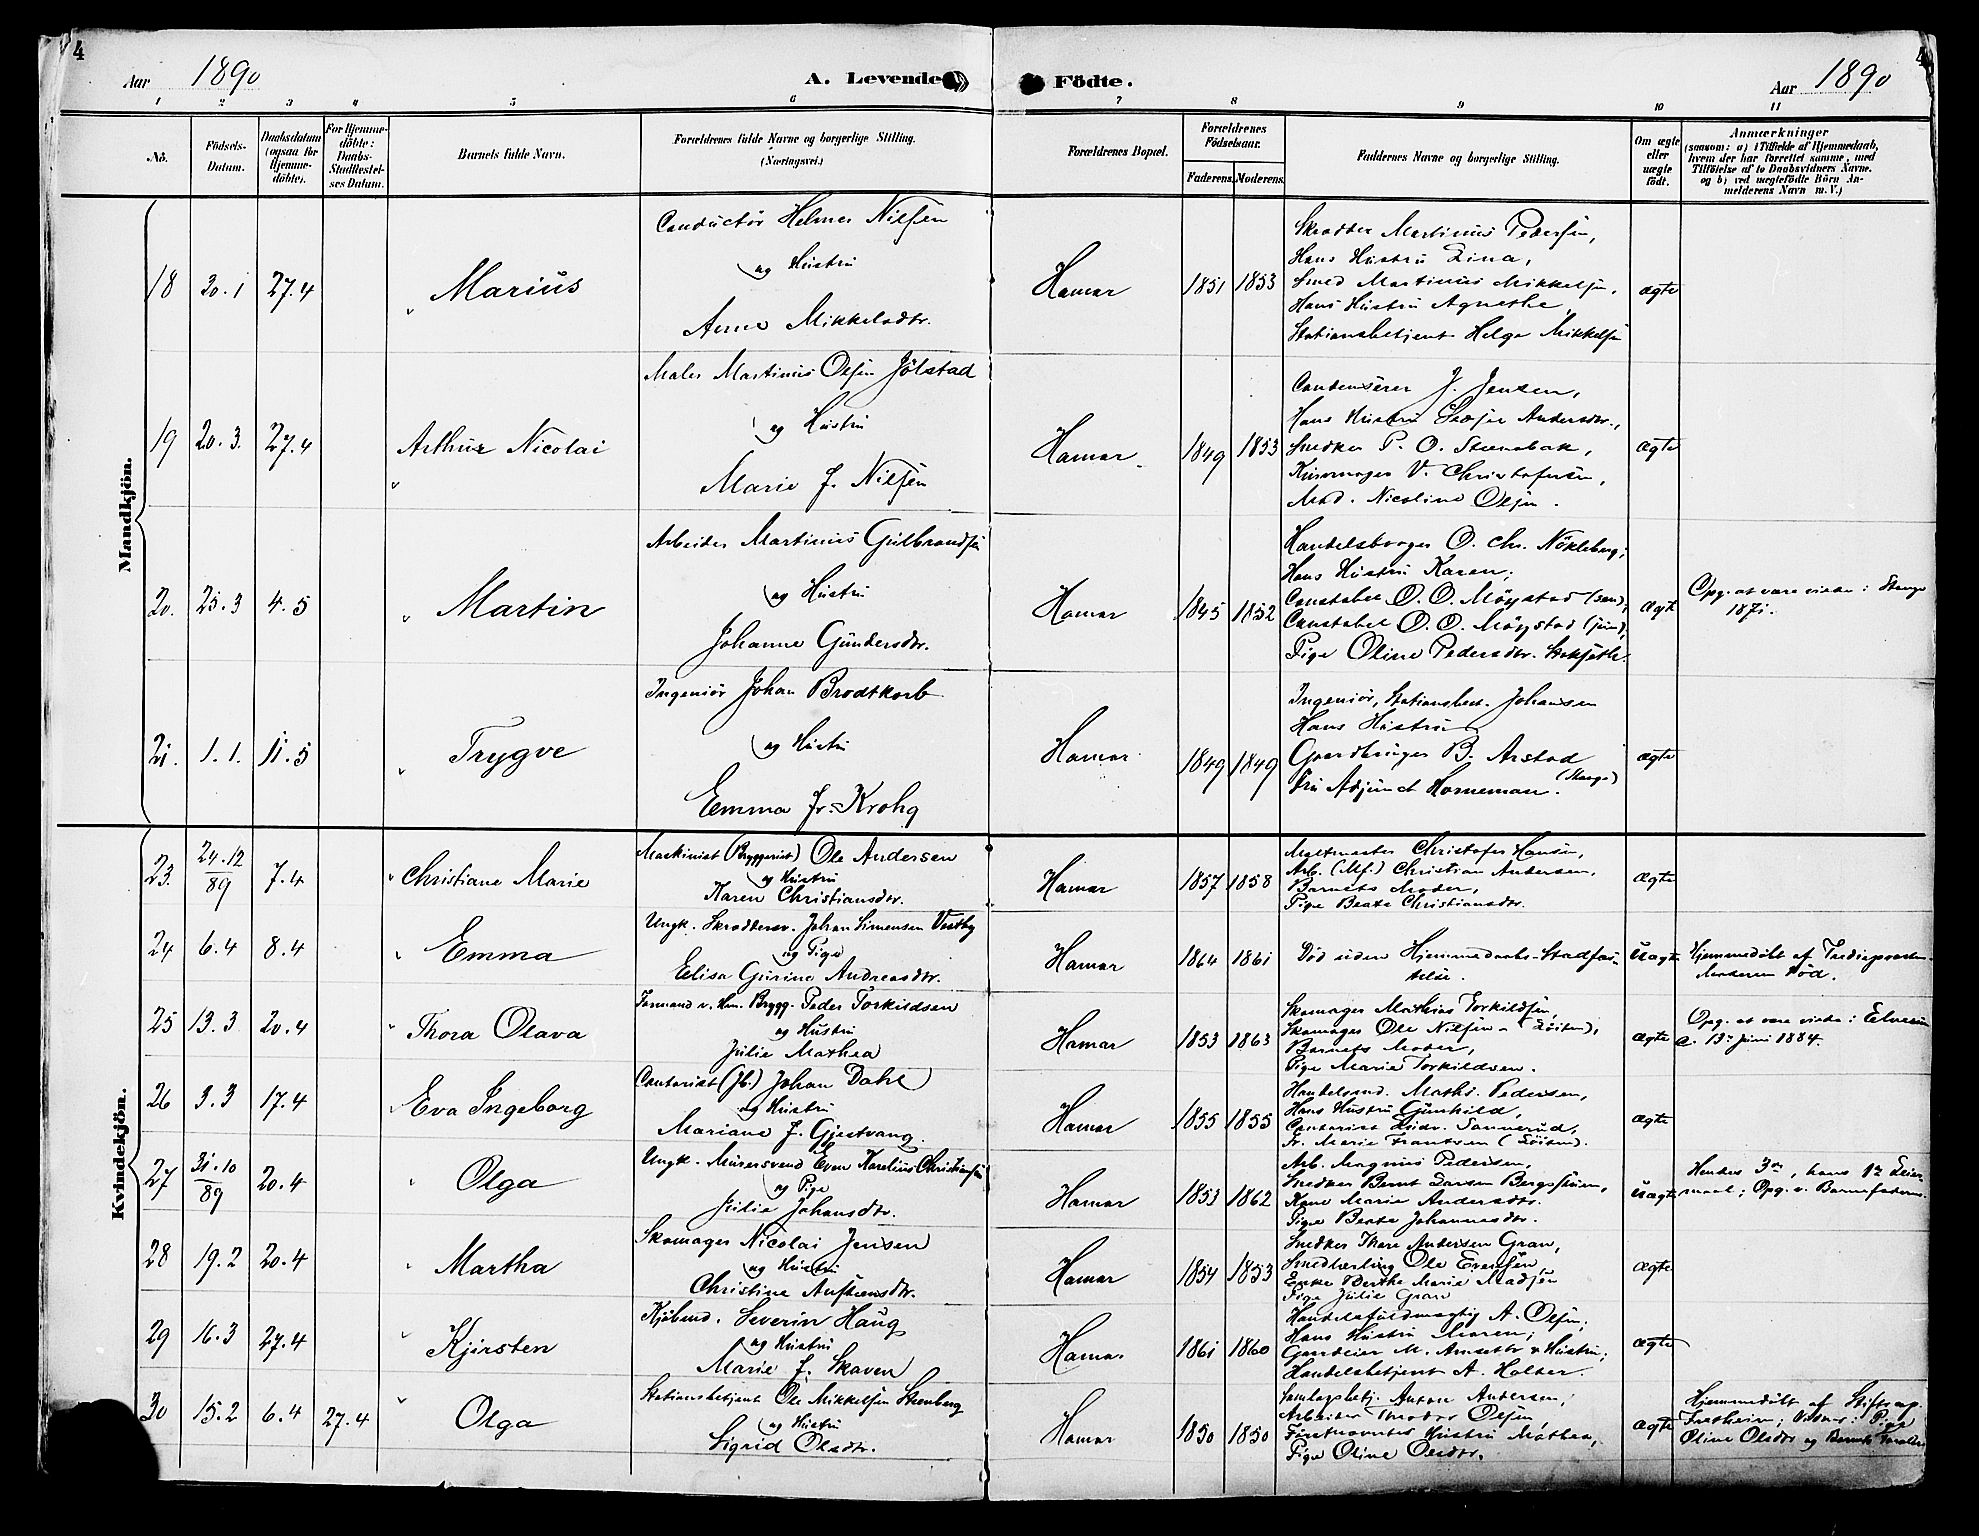 4
Aar 1890
A. Levende
Födte.
Aar 1890
4
1 2 3 4 5 6 7 8 9 10 11
No.
Födsels-
Datum.
Daabsdatum
(ogsaa for
Hjemme-
döbte).
For Hjemme-
döbte:
Daabs-
Stadfestel-
ses Datum.
Barnets fulde Navn.
Forældrenes fulde Navne og borgerlige Stilling.
(Næringsvei.)
Forældrenes Bopæl.
Forældrenes
Födselsaar.
Faderens. Moderens.
Faddernes Navne og borgerlige Stilling.
Om ægte
eller
uægte
födt.
Anmærkninger
(saasom: a) i Tilfælde af Hjemmedaab,
hvem der har forrettet samme, med
Tilföielse af to Daabsvidners Navne.
og b) ved uægtefödte Börn An-
melderens Navn m. V.)
Mandkjön.
18 20.1 27.4
Marius
Conductør Helmer Nilsen
og Hustru
Anne Mikkelsdtr.
Hamar 1851 1853
Skrædder Martinus Pedersen,
Hans Hustru Lina,
Smed Martinus Mikkelsen,
Hans Hustru Agnethe,
Stationsbetjent Helge Mikkelsen
ægte
19 20.3. 27.4
Arthur Nicolai
Maler Martinus Olsen Jölstad
og Hustru
Marie f. Nilsen
Hamar. 1849 1853
J. Jensen,
Hans Hustru Andersdtr.,
Snedker P. O. Steensbak,
V. Christofersen,
Mad. Nicoline Olsen.
ægte
20. 25.3 4.5
Martin
Arbeider Martinus Gulbrandsen
og Hustru
Johanne Gundersdtr.
Hamar 1845 1852
Handelsborger O. Chr. Nökleberg;
Hans Hustru Karen;
Constabel O. O. Möystad (sen),
Constabel O. O. Möystad (jun),
Pige Oline Pedersdtr.
ægte
Opg. at være viede i Stange
1871.
21. 1.1. 11.5
Trygve
Ingeniör Johan Brodtkorb
og Hustru
Emma f. Krohg
Hamar 1849 1849
Ingeniör, Stationsbest. Johansen
Hans Hustru
Gaardbruger B. Arstad
(Stange)
Fru Adjunct Horneman.
ægte
Kvindekjön.
23. 24.12
89 7.4
Christiane Marie
Maskinist (Bryggeriet) Ole Andersen
og Hustru
Karen Christiansdtr.
Hamar 1857 1858
Maltmester Christofer Hansen,
Arb. (Mf.) Christian Andersen,
Barnets Moder,
Pige Beate Christiansdtr.
ægte
24 6.4 8.4
Emma
Ungk. Skræddersv. Johan Simensen Vestby
og Pige
Elise Gurine Andreasdtr.
Hamar 1864 1861
Död uden Hjemmedaabs-Stadfæs
telse.
uægte
Hjemmedöbt af
Moderen död.
25 13.3 20.4
Thora Olava
Formand v. Ham. Brygg. Peder Torkildsen
og Hustru
Julie Mathea
Hamar 1853 1863
Skomager Mathias Torkildsen,
Skomager Ole Nilsen (Löiten),
Barnets Moder,
Pige Marie Torkildsen.
ægte
Opg. at være viede i Elverum
13. Juni 1884.
26 3.3 17.4
Eva Ingeborg
Contorist (Jb.) Johan Dahl
og Hustru
Mariane f. Gjestvang.
Hamar 1855 1855
Handelsmd. Maths. Pedersen,
Hans Hustru Gunhild,
Contorist Ludv. Sannerud,
Fr. Marie Frantzen (Löiten).
ægte
27 31.10
89 20.4
Olga
Ungk. Murersvend Even Karelius Christiansen
og Pige
Julie Johansdtr.
Hamar 1853 1862
Arb. Magnus Pedersen,
Snedker Bernt Larsen
Kone Marie Andersdtr.
Pige Beate Johannesdtr.
uægte
Hendes 3die, hans 1ste Leier-
maal; Opg. v. Barnefaderen.
28 19.2 20.4
Martha
Skomager Nicolai Jensen
og Hustru
Christine Austensdtr.
Hamar 1854 1853
Snedker Thore Andersen Gran,
Smedlærling Ole Evensen,
Enke Berthe Marie Madsen
Pige Julie Gran
ægte
29 16.3 27.4
Kjirsten
Kjöbmd. Severin Haug
og Hustru
Marie f. Skaven
Hamar 1861 1860
Handelsfuldmægtig A. Olsen;
Hans Hustru Maren;
Gaardeier M. v. Hustru;
Handelsbetjent A. Holter.
ægte
30 15.2 6.4 27.4
Olga
Stationsbetjent Ole Mikkelsen Stenberg
og Hustru
Sigrid Olsdtr.
Hamar 1850 1850
Anton Andersen;
Arbeider Theodor Olsen,
Hustru Mathea,
Pige Oline Olsdtr.
ægte
Hjemmedöbt af
Pige
Oline Olsdtr og Barnets